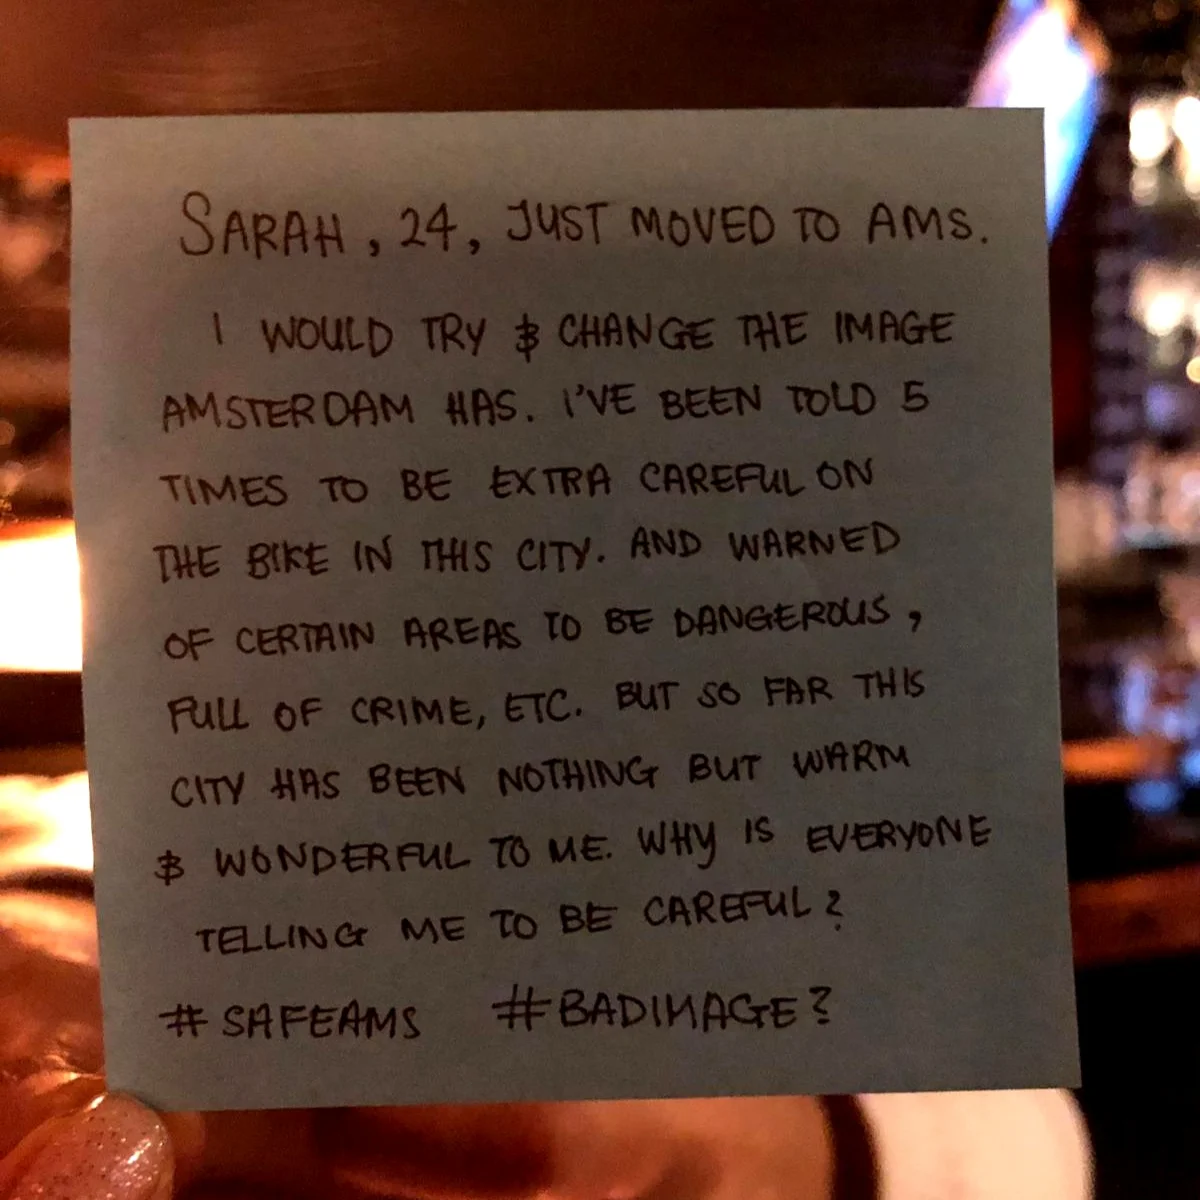 SARAH, 24, JUST MOVED TO AMS.
I WOULD TRY & CHANGE THE IMAGE
AMSTERDAM HAS. I'VE BEEN TOLD 5
TIMES TO BE EXTRA CAREFUL ON
THE BIKE IN THIS CITY. AND WARNED
OF CERTAIN AREAS TO BE DANGEROUS,
FULL OF CRIME, ETC. BUT SO FAR THIS
CITY HAS BEEN NOTHING BUT WARM
& WONDERFUL TO ME. WHY IS EVERYONE
TELLING ME TO BE CAREFUL?
#SAFEAMS #BADIMAGE?